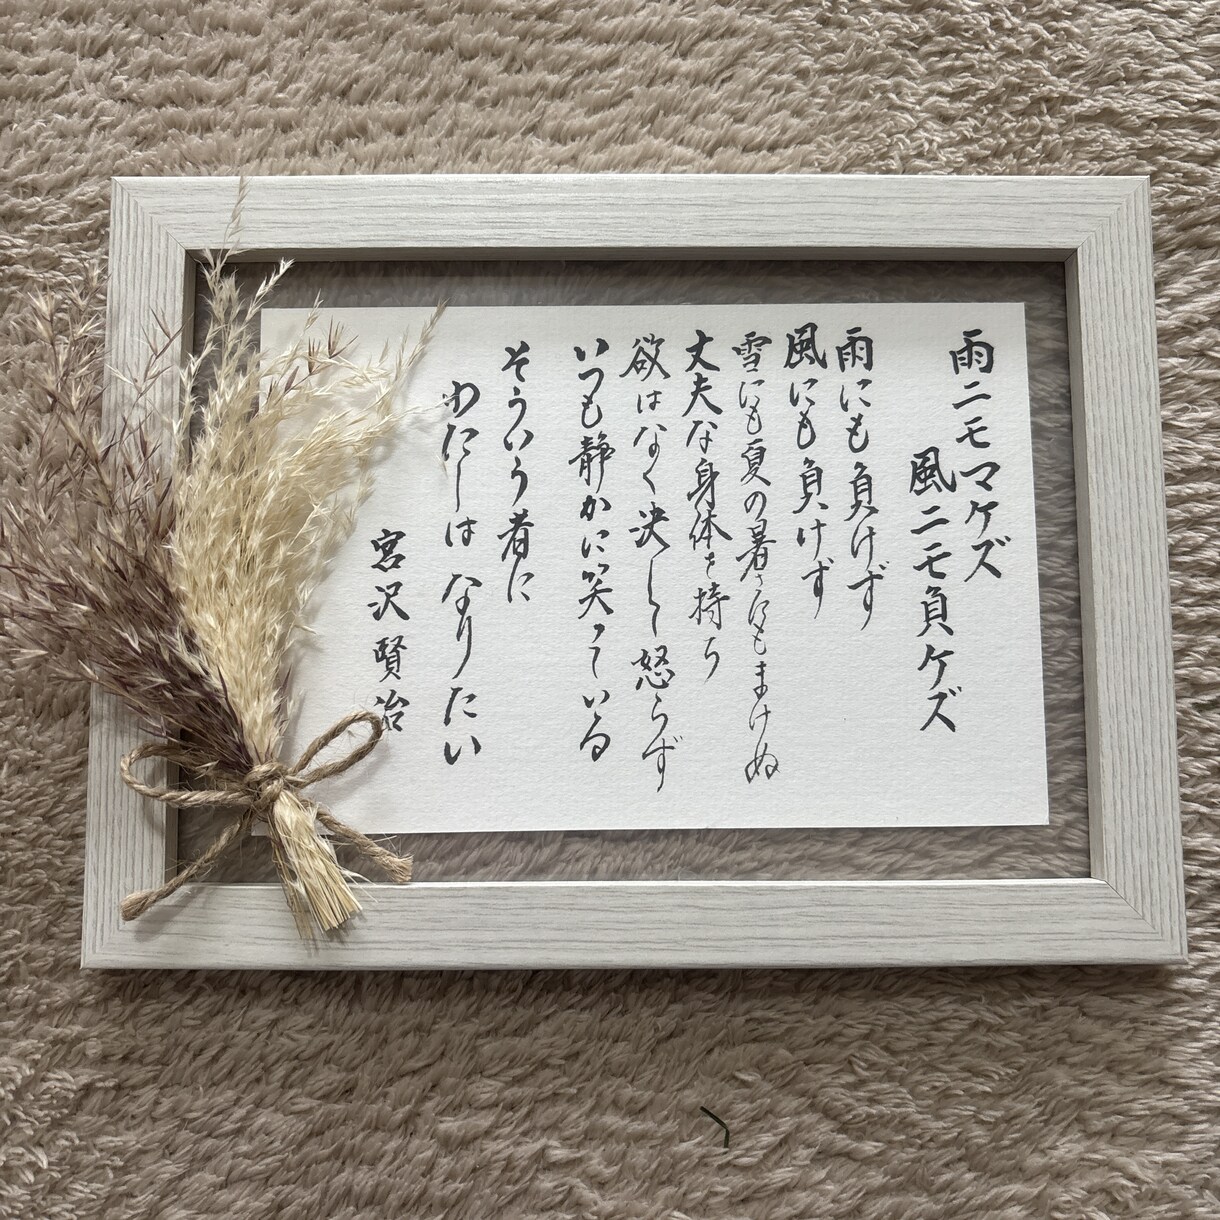 雨ニモマケズ
風ニモ負ケズ
雨にも負けず
風にも負けず
雪にも夏の暑さにもまけぬ
丈夫な身体を持ち
欲はなく決して怒らず
いつも静かに笑っている
そういう者に
わたしはなりたい
宮沢賢治